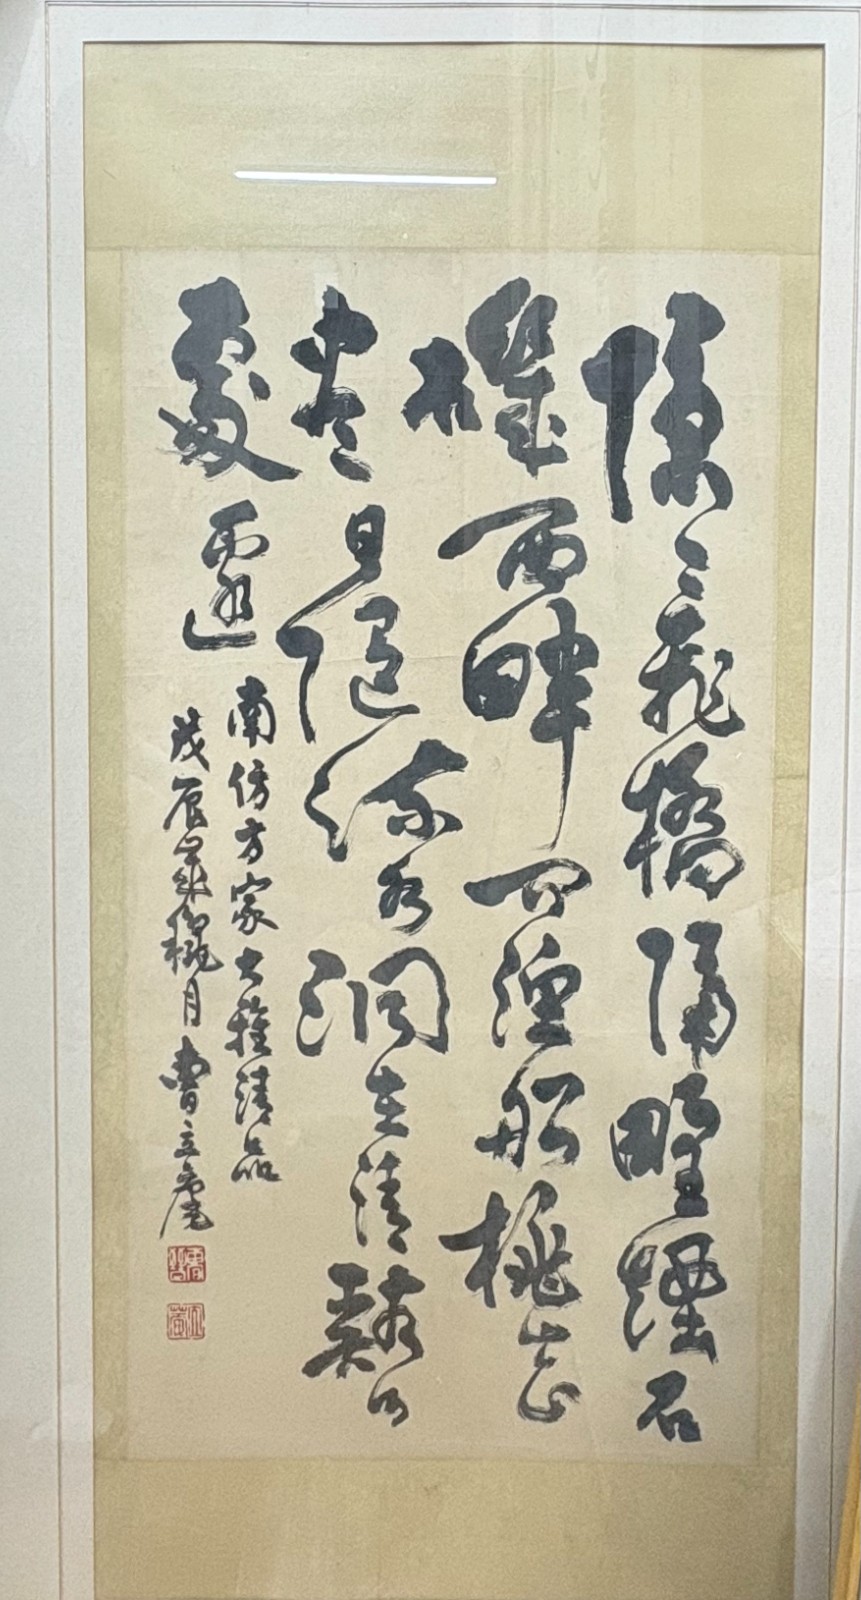 隱〻飛橋隔野煙石
磯西畔問漁船桃花
盡日隨流水洞在清谿何
處邊
南傍方家大雅清品
戊辰歲月曹立庵